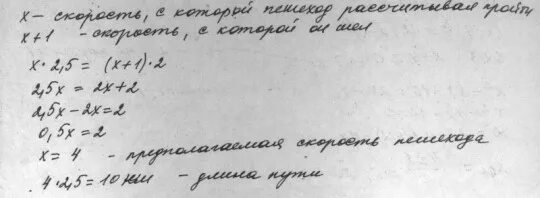 x – скорость, с которой пешеход рассчитывал пройти
x+1 – скорость, с которой он шел
x·2,5 = (x+1)·2
2,5x = 2x+2
2,5x–2x=2
0,5x=2
x=4 – предполагаемая скорость пешехода
4·2,5=10 км – длина пути